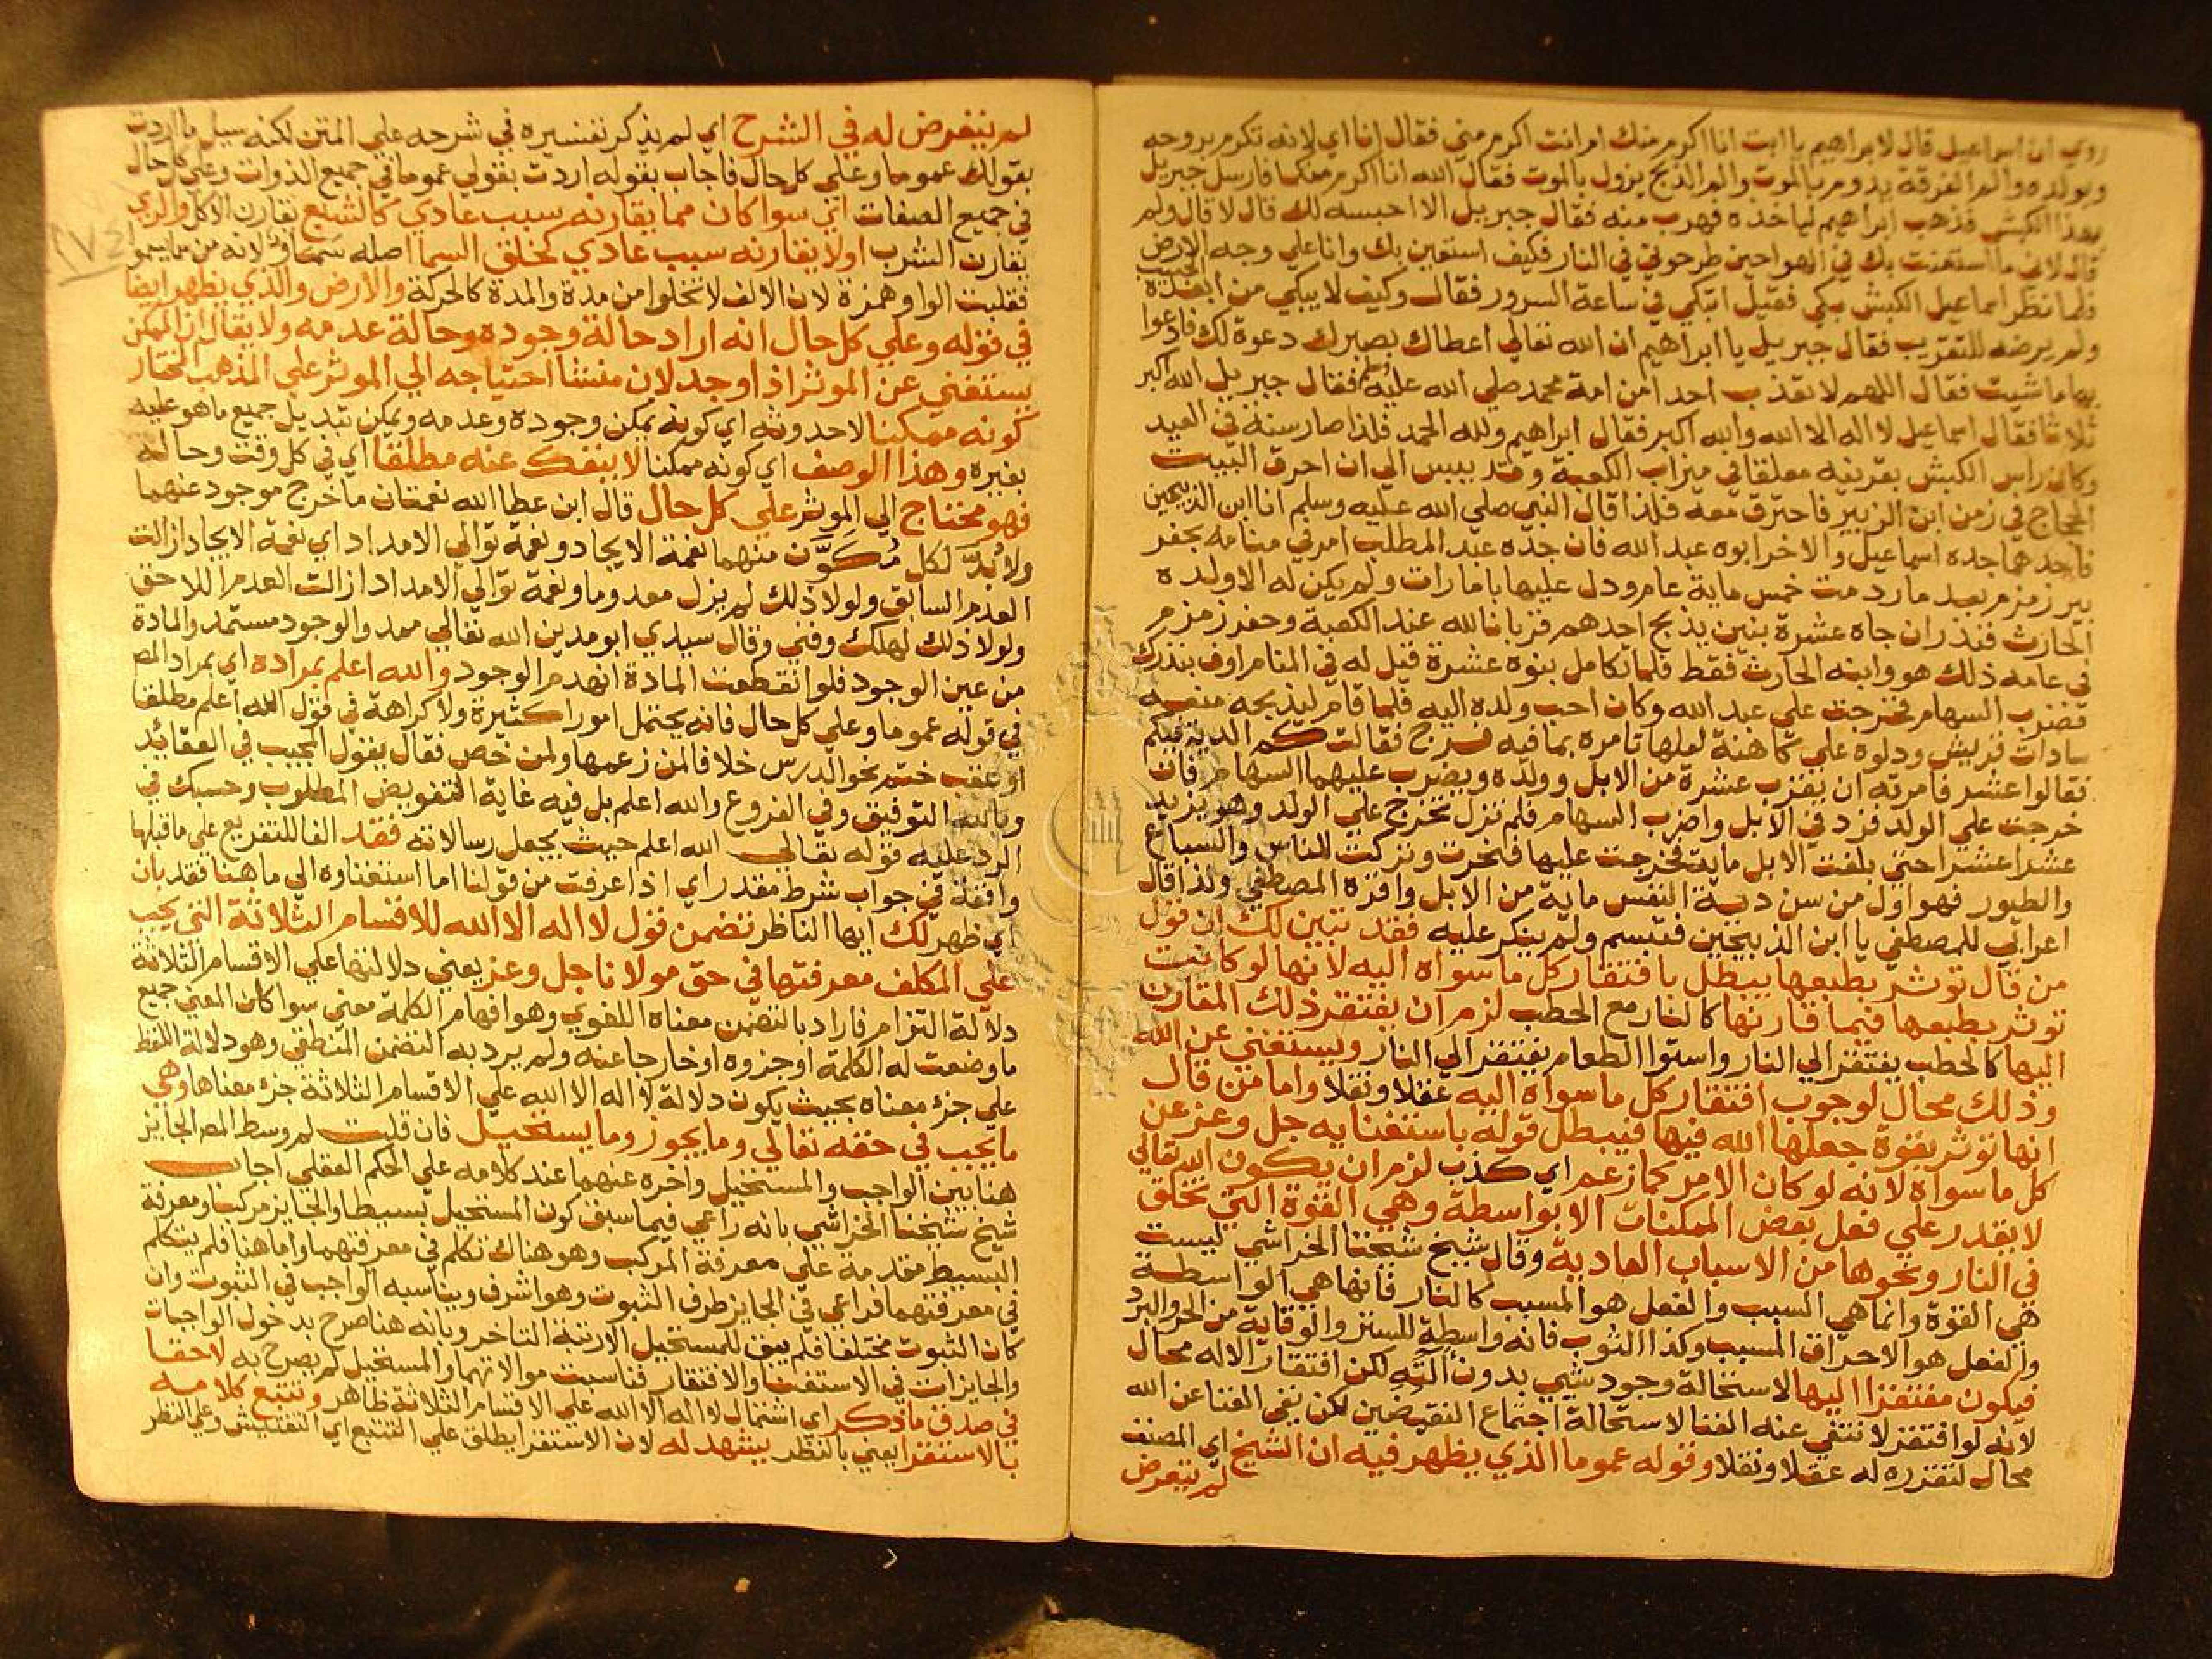 روي ان اسماعيل قال لابراهيم يا ابت انا اكرم منك ام انت اكرم مني فقال انا اي لانه تكرم بروحه
وبولده والم الفرقة يدوم بالموت والم الذبح يزول بالموت فقال الله انا اكرم منكما فارسل جبريل
بهذا الكبش فذهب ابراهيم لياخذه فهرب منه فقال جبريل الا احبسه لك قال لا قال ولم
قال لاني ما استعنت بك في الهوا حين طرحوني في النار فكيف استعين بك وانا علي وجه الارض
فلما نظر اسماعيل الكبش بكي فقيل اتبكي في ساعة السرور فقال وكيف لا يبكي من ابعده الحبيب
ولم يرضه للتقريب فقال جبريل يا ابراهيم ان الله تعالي اعطاك بصبرك دعوة لك فادعوا
بها ما شيت فقال اللهم لا تعذب احدا من امة محمد صلي الله عليه وسلم فقال جبريل الله اكبر
ثلاثا فقال اسماعيل لا اله الا الله والله اكبر فقال ابراهيم ولله الحمد فلذا صار سنة في العيد
وكان راس الكبش بقرينه معلقا في ميزاب الكعبة وقد يبس الي ان احرق البيت
الحجاج في زمن ابن الزبير فاحترق معه فلذا قال النبي صلي الله عليه وسلم انا ابن الذبيحين
فاحدهما جده اسماعيل والاخر ابوه عبد الله فان جده عبد المطلب امر في منامه بحفر
بير زمزم بعد ما ردمت خمس ماية عام ودل عليها بامارات ولم يكن له الا ولده
الحارث فنذر ان جاه عشرة بنين يذبح احدهم قربانا لله عند الكعبة وحفر زمزم
في عامه ذلك هو وابنه الحارث فقط فلما تكامل بنوه عشرة قيل له في المنام اوف بنذرك
فضرب السهام فخرجت علي عبد الله وكان احب ولده اليه فلما قام ليذبحه منعه
سادات قريش ودلوه علي كاهنة لعلها تامره بما فيه فرج فقالت كم الدية فيكم
فقالوا عشر فامرته ان يقرب عشرة من الابل وولده ويضرب عليهما السهام فان
خرجت علي الولد فزد في الابل واضرب السهام فلم تزل تخرج علي الولد وهو يزيد
عشرا عشرا حتي بلغت الابل ماية فخرجت عليها فنحرت وتركت للناس والسباع
والطيور فهو اول من سن دية النفس ماية من الابل واقره المصطفي ولذا قال
اعرابي للمصطفي يا ابن الذبيحين فتبسم ولم ينكر عليه فقد تبين لك ان قول
من قال تؤثر بطبعها يبطل بافتقار كل ما سواه اليه لانها لو كانت
توثر بطبعها فيما قارنها كالنار مع الحطب لزم ان يفتقر ذلك المقارن
اليها كالحطب يفتقر الي النار واستوا الطعام يفتقر الي النار ويستغني عن الله
وذلك محال لوجوب افتقار كل ما سواه اليه عقلا ونقلا واما من قال
انها توثر بقوة جعلها الله فيها فيبطل قوله باستغنايه جل وعز عن
كل ما سواه لانه لو كان الامر كما زعم اي كذب لزم ان يكون الله تعالي
لا يقدر علي فعل بعض الممكنات الا بواسطة وهي القوة التي تخلق
في النار ونحوها من الاسباب العادية وقال شيخ شيخنا الخراشي ليست
هي القوة وانما هي السبب والفعل هو المسبب كالنار فانها هي الواسطة
والفعل هو الاحراق المسبب وكذا الثوب فانه واسطة للستر والوقاية من الحر والبرد
فيكون مفتقرا اليها لاستحالة وجود شي بدون آلته لكن افتقار الاله محال
لانه لو افتقر لا نتفي عنه الغنا لاستحالة اجتماع النقيضين لكن نفي الغنا عن الله
محال لتقرره له عقلا ونقلا وقوله عموما الذي يظهر فيه ان الشيخ اي المصنف
لم يتعرض
لم يتعرض له في الشرح اي لم يذكر تفسيره في شرحه علي المتن لكنه سيل ما اردت
بقولك عموما وعلي كل حال فاجاب بقوله اردت بقولي عموما في جميع الذوات وعلي كل حال
في جميع الصفات اي سوا كان مما يقارنه سبب عادي كالشبع يقارن الاكل والري
يقارن الشرب او لا يقارنه سبب عادي كخلق السما اصله سماو لانه من سما يسموا
٢٧٤
فقلبت الواو همزة لان الالف لا تخلوا من مدة والمدة كالحركة والارض والذي يظهر ايضا
في قوله وعلي كل حال انه اراد حالة وجوده وحالة عدمه ولا يقال ان الممكن
يستغني عن الموثر اذا وجد لان منشا احتياجه الي الموثر علي المذهب المختار
كونه ممكنا لا حدوثه اي كونه يمكن وجوده وعدمه ويمكن تبديل جميع ما هو عليه
بغيره وهذا الوصف اي كونه ممكنا لا ينفك عنه مطلقا اي في كل وقت وحالة
فهو محتاج الي الموثر علي كل حال قال ابن عطا الله نعمتان ما خرج موجود عنهما
ولا بُدَّ لكل مُكَوَّن منهما نعمة الايجاد ونعمة توالي الامداد اي نعمة الايجاد ازالت
العدم السابق ولولا ذلك لم يزل معدوما ونعمة توالي الامداد ازالت العدم اللاحق
ولولا ذلك لهلك وفني وقال سيدي ابو مدين الله تعالي ممد والوجود مستمد والمادة
من عين الوجود فلو انقطعت المادة انهدم الوجود والله اعلم بمراده اي بمراد المص
في قوله عموما وعلي كل حال فانه يحتمل امورا كثيرة ولا كراهة في قول الله اعلم مطلقا
او عقب ختم نحو الدرس خلافا لمن زعمها ولمن خص فقال يقول المجيب في العقائد
وبالله التوفيق وفي الفروع والله اعلم بل فيه غاية التفويض المطلوب وحسبك في
الرد عليه قوله تعالي الله اعلم حيث يجعل رسالاته فقد الفا للتفريع علي ما قبلها
واقعة في جواب شرط مقدر اي اذا عرفت من قولنا اما استغناوه الي ما هنا فقد بان
اي ظهر لك ايها الناظر تضمن قول لا اله الا الله للاقسام الثلاثة التي يجب
علي المكلف معرفتها في حق مولانا جل وعز يعني دلالتها علي الاقسام الثلاثة
دلالة التزام فاراد بالتضمن معناه اللغوي وهو افهام الكلمة معني سوا كان المعني جميع
ما وضعت له الكلمة او جزوه او خارجا عنه ولم يرد به التضمن المنطقي وهو دلالة اللفظ
علي جزء معناه بحيث يكون دلالة لا اله الا الله علي الاقسام الثلاثة جزء معناها وهي
ما يجب في حقه تعالي وما يجوز وما يستحيل فان قلت لم وسط المص الجايز
هنا بين الواجب والمستحيل واخره عنهما عند كلامه علي الحكم العقلي اجاب
شيخ شيخنا الخراشي بانه راعي فيما سبق كون المستحيل بسيطا والجايز مركبا ومعرفة
البسيط مقدمة علي معرفة المركب وهو هناك تكلم في معرفتهما واما هنا فلم يتكلم
في معرفتهما فراعي في الجايز طرف الثبوت وهو اشرف ويناسبه الواجب في الثبوت وان
كان الثبوت مختلفا فلم يبق للمستحيل الا رتبة التاخر وبانه هنا صرح بدخول الواجبات
والجايزات في الاستغنا والافتقار فناسبت موالاتهما والمستحيل لم يصرح به لاحقا
في صدق ما ذكر اي اشتمال لا اله الا الله علي الاقسام الثلاثة ظاهر وتتبع كلامه
بالاستقرا يعني بالنظر يشهد له لان الاستقرا يطلق علي التتبع اي التفتيش وعلي النظر